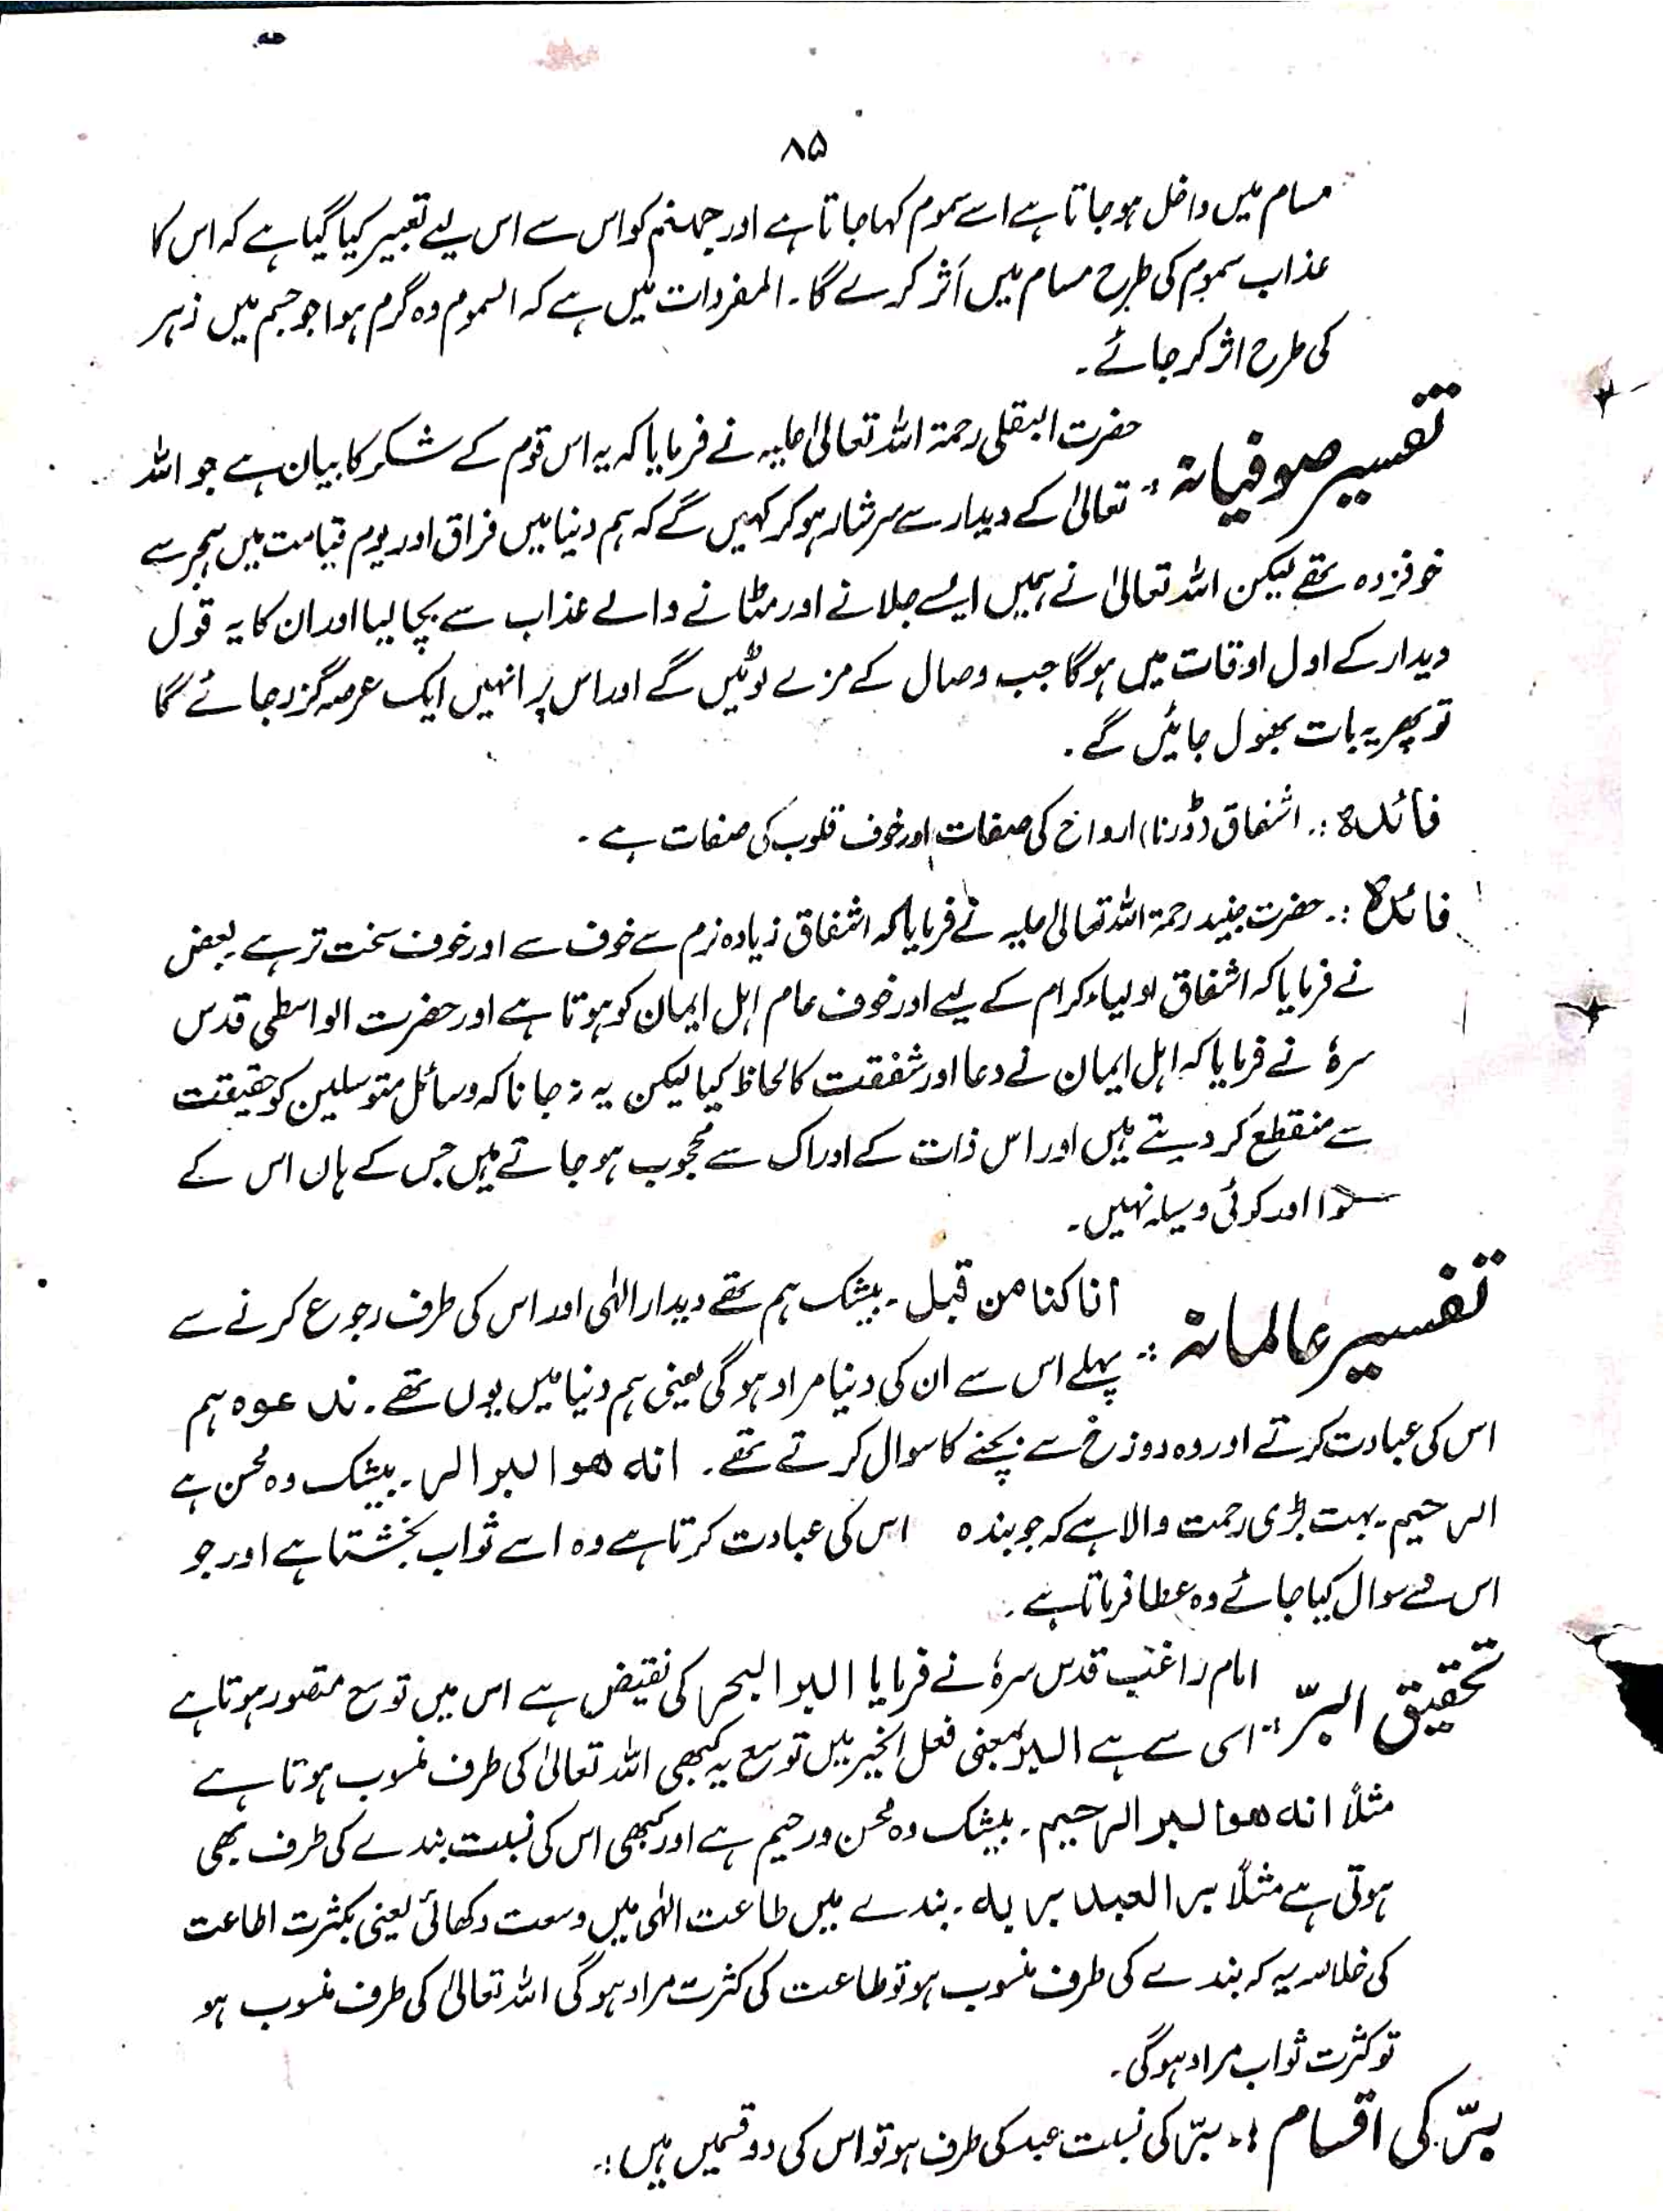 ۸۵
مسام میں داخل ہو جاتا ہے اسے سموم کہا جاتا ہے اور جہنم کو اس سے اس لیے تعبیر کیا گیا ہے کہ اس کا
عذاب سموم کی طرح مسام میں اَثر کرے گا۔ المفردات میں ہے کہ السموم وہ گرم ہوا جو جسم میں زہر
کی طرح اثر کر جائے۔
تفسیر صوفیانہ :۔ حضرت البقلی رحمۃ اللہ تعالیٰ علیہ نے فرمایا کہ یہ اس قوم کے شکر کا بیان ہے جو اللہ
تعالیٰ کے دیدار سے سرشار ہو کر کہیں گے کہ ہم دنیا میں فراق اور یوم قیامت میں ہجر سے
خوفزدہ تھے لیکن اللہ تعالیٰ نے ہمیں ایسے جلانے اور مٹانے والے عذاب سے بچا لیا اور ان کا یہ قول
دیدار کے اول اوقات میں ہوگا جب وصال کے مزے لوٹیں گے اور اس پر انہیں ایک عرصہ گزر جائے گا
تو پھر یہ بات بھول جائیں گے۔
فائدہ :۔ اشفاق (ڈرنا) ارواح کی صفات اور خوف قلوب کی صفات ہے۔
فائدہ :۔ حضرت جنید رحمۃ اللہ تعالیٰ علیہ نے فرمایا کہ اشفاق زیادہ نرم ہے خوف سے اور خوف سخت تر ہے بعض
نے فرمایا کہ اشفاق اولیاء کرام کے لیے اور خوف عام اہل ایمان کو ہوتا ہے اور حضرت الواسطی قدس
سرہٗ نے فرمایا کہ اہل ایمان نے دعا اور شفقت کا لحاظ کیا لیکن یہ نہ جانا کہ وسائل متوسلین کو حقیقت
سے منقطع کر دیتے ہیں اور اس ذات کے ادراک سے محجوب ہو جاتے ہیں جس کے ہاں اس کے
سوا اور کوئی وسیلہ نہیں۔
تفسیر عالمانہ :۔ انا کنا من قبل۔ بیشک ہم تھے دیدار الٰہی اور اس کی طرف رجوع کرنے سے
پہلے اس سے ان کی دنیا مراد ہوگی یعنی ہم دنیا میں یوں تھے۔ ندعوہ ہم
اس کی عبادت کرتے اور وہ دوزخ سے بچنے کا سوال کرتے تھے۔ انہ ھوا لبر الر۔ بیشک وہ محسن ہے
الرحیم۔ بہت بڑی رحمت والا ہے کہ جو بندہ اس کی عبادت کرتا ہے وہ اسے ثواب بخشتا ہے اور جو
اس سے سوال کیا جائے وہ عطا فرماتا ہے۔
تحقیق البرّ :۔ امام راغب قدس سرہٗ نے فرمایا البر البحر کی نقیض ہے اس میں توسع متصور ہوتا ہے
اسی سے ہے البر بمعنی فعل الخیر میں توسع یہ کبھی اللہ تعالیٰ کی طرف منسوب ہوتا ہے
مثلاً انہ ھوا لبر الرحیم۔ بیشک وہ محسن و رحیم ہے اور کبھی اس کی نسبت بندے کی طرف بھی
ہوتی ہے مثلاً بر العبد بر بہ۔ بندے میں طاعت الٰہی میں وسعت دکھائی یعنی بکثرت اطاعت
کی خلاصہ یہ کہ بندے کی طرف منسوب ہو تو طاعت کی کثرت مراد ہوگی اللہ تعالیٰ کی طرف منسوب ہو
تو کثرت ثواب مراد ہوگی۔
برّ کی اقسام :۔ برّ کی نسبت عبد کی طرف ہو تو اس کی دو قسمیں ہیں :۔